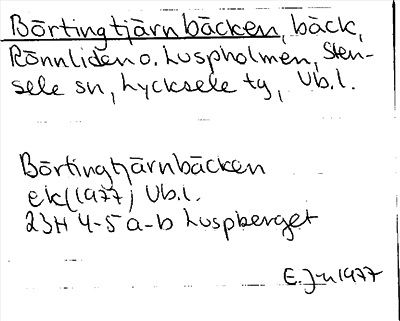 Börtingtjärnbäcken, bäck,
Rönnliden o. Luspholmen, Sten-
sele sn, Lycksele tg, Vb.l.
Börtingtjärnbäcken
ek (1977) Vb.l.
23H 4-5 a-b Luspberget
E. J-n 1977